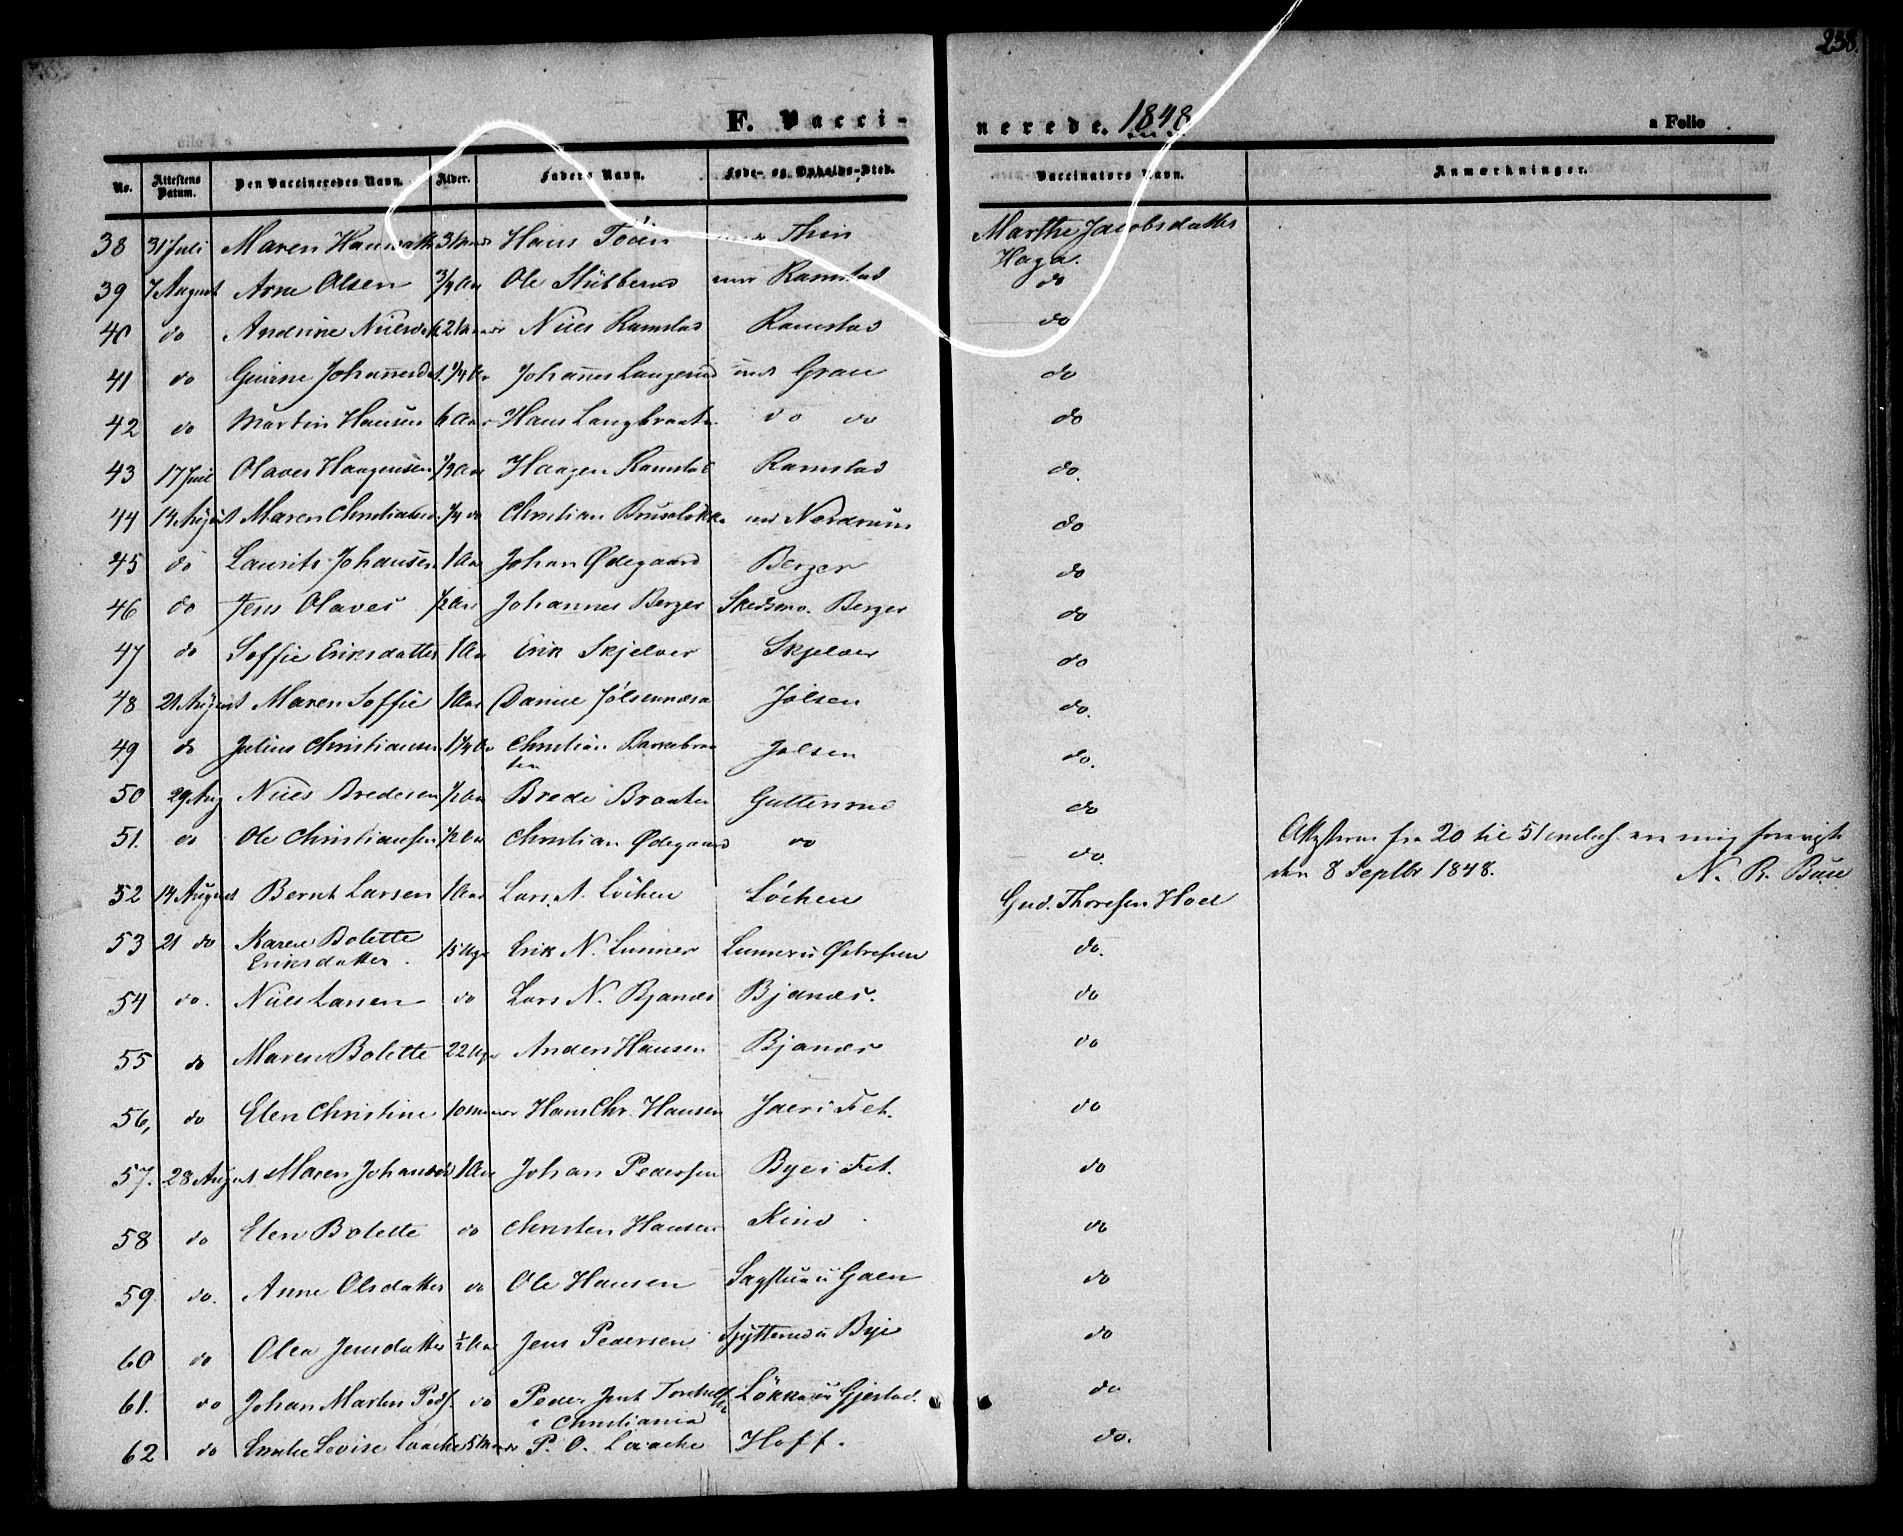 238.
F. Vacci-
nerede. 1848
a Folio
No. Attestens Datum. Den Vaccineredes Navn. Alder. Faders Navn. Føde- og Opholds-Sted. Vaccinators Navn. Anmærkninger.
38 31 Juli Maren Hansdatt 3 Hans Thin Marthe Jacobsdatter Haga.
39 7 August Arne Olsen 3/4 Aar Ole Stubberud Ramstad do
40 do Andrine Nilsd Nils Ramstad Ramstad do
41 do Johannesd 1/4 Johannes Langerud und Grau do
42 do Martin Hansen 6 Aar Hans Langbraaten do do do
43 17 Juli Olaves Haagensen 1/2 Aar Haagen Ramstad Ramstad do.
44 14 August Maren Christiansd. 1/4 do Christian Bruseløkke und Nordrum do
45 do Laurits Johansen 1 Aar Johan Ødegaard Berger do
46 do Jens Olaves 1/2 Aar Johannes Berger Skedsmo. Berger do
47 do Soffie Eriksdatter 1 Aar Erik Skjelver Skjelver do
48 21 August Maren Soffie 1 Aar Daniel Jølsen do.
49 do Julius Christiansen 1 1/4 Aar Christian Jølsen do.
50 29 Aug Niels Bredesen 1/2 Aar Brede Braaten Gutterud do
51. do Ole Christiansen 1/2 Aar Christian Ødegaard do do.
Attesterne fra 20 til 51 incl. ere mig foreviste
den 8 Septbr 1848. N. R. Bull
52 14 August Bernt Larsen 1 Aar Lars A. Löchen Löchen Gud. Thoresen Hoel
53 21 do Karen Bolette Eriksdatter. 15 Uger Erik N. Lunner Lunner u Østreseim do.
54 do. Niels Larsen do Lars N. Bjanæs Bjanæs. do
55 do Maren Bolette 22 Uger Anders Hansen Bjanæs do
56, do Elen Christine 10 Hans Chr. Hansen Jaer i Fet. do
57. 28 August Maren Johansd 1 Aar Johan Pedersen Bye i Fet. do
58 do Elen Bolette do Christen Hansen Kind do
59 do. Anne Olsdatter do Ole Hansen Sagstuen u Gaen do
60 do Olea Jensdatter 1/2 Aar Jens Pedersen u Bye do
61. do Johan Martin Peds. do Peder Jens i Christiania Løkka u Gjestad. do
62 do Emilie Lovise Laache 5 P. O. Laache Hoff. do.